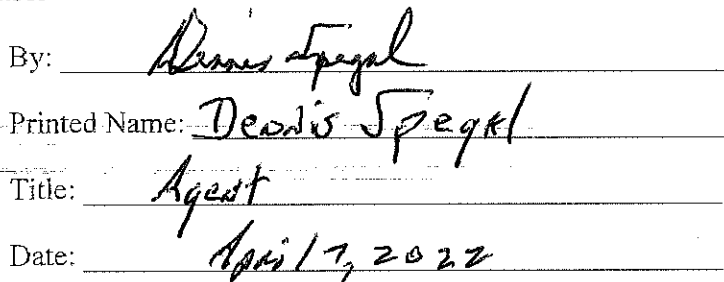 By: Dennis Spegal
Printed Name: Dennis Spegal
Title: Agent
Date: April 7, 2022